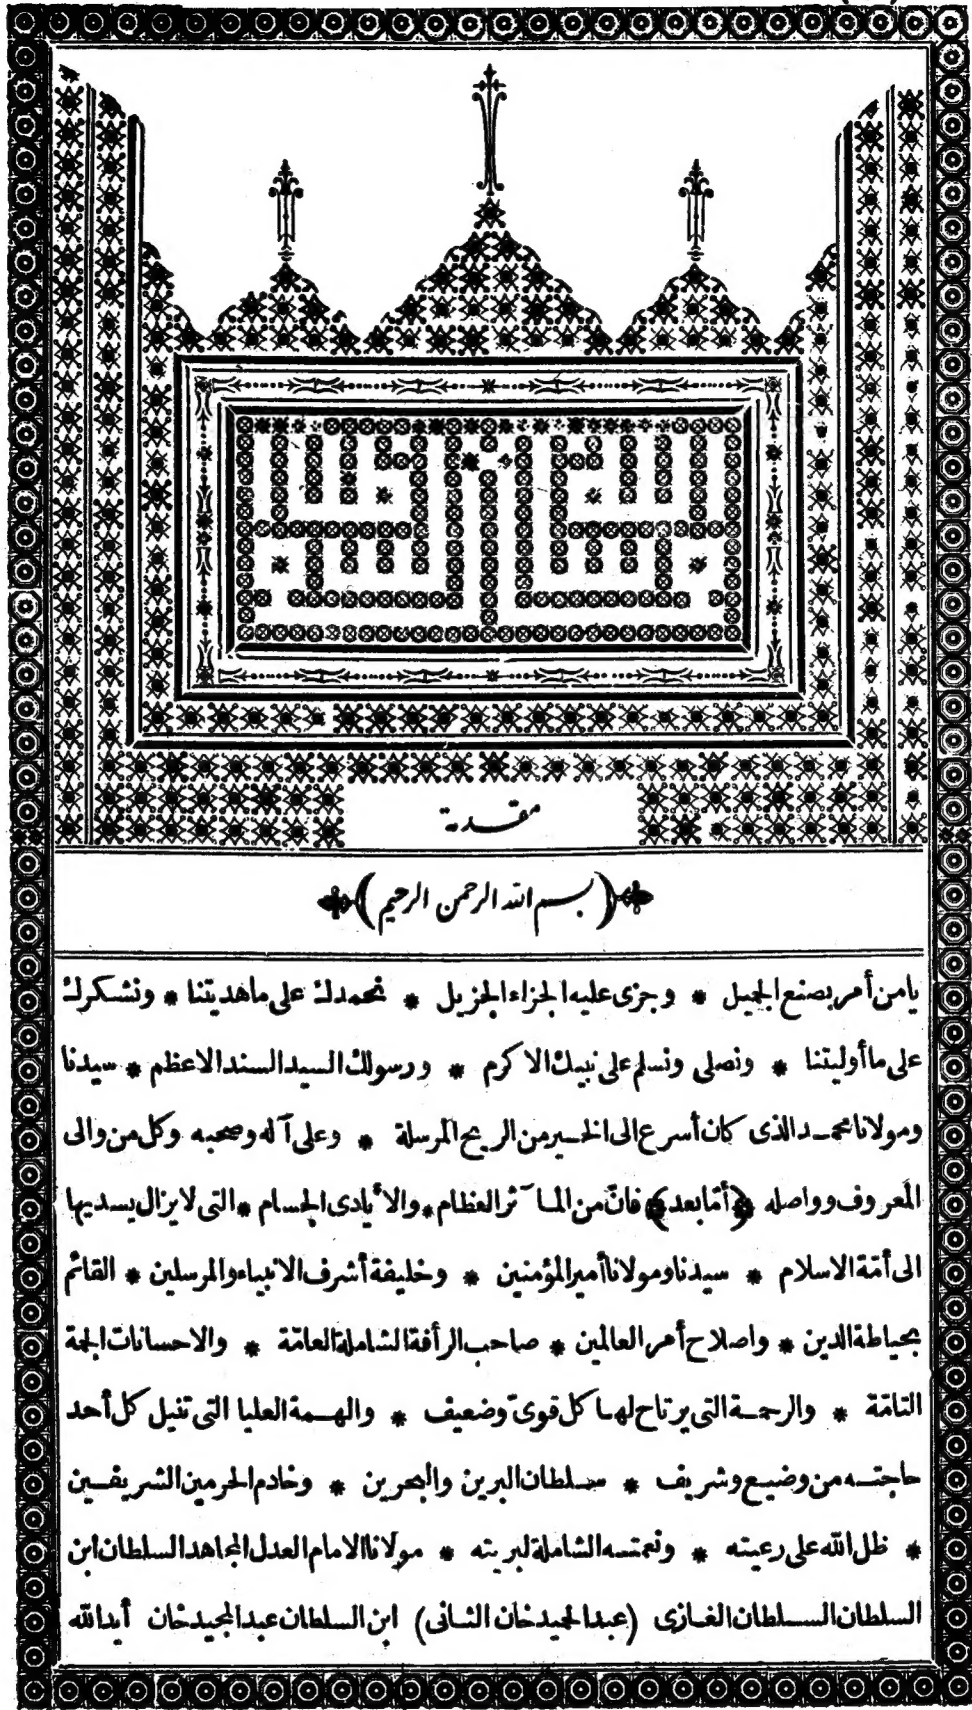 مقدمة
﴿بسم الله الرحمن الرحيم﴾
يا من أمر بصنع الجميل * وجزى عليه الجزاء الجزيل * نحمدك على ما هديتنا * ونشكرك
على ما أوليتنا * ونصلى ونسلم على نبيك الاكرم * ورسولك السيد السند الاعظم * سيدنا
ومولانا محمد الذى كان أسرع الى الخير من الريح المرسلة * وعلى آله وصحبه وكل من والى
المعروف وواصله ﴿أمّا بعد﴾ فانّ من المآثر العظام * والأيادى الجسام * التى لا يزال يسديها
الى أمّة الاسلام * سيدنا ومولانا أمير المؤمنين * وخليفة أشرف الانبياء والمرسلين * القائم
بحياطة الدين * واصلاح أمر العالمين * صاحب الرأفة الشاملة العامّة * والاحسانات الجمة
التامّة * والرحمة التى يرتاح لها كل قوىّ وضعيف * والهمة العليا التى تنيل كل أحد
حاجته من وضيع وشريف * سلطان البرين والبحرين * وخادم الحرمين الشريفين
* ظل الله على رعيته * ونعمته الشاملة لبريته * مولانا الامام العدل المجاهد السلطان ابن
السلطان السلطان الغازى (عبد الحميد خان الثانى) ابن السلطان عبد المجيد خان أيد الله